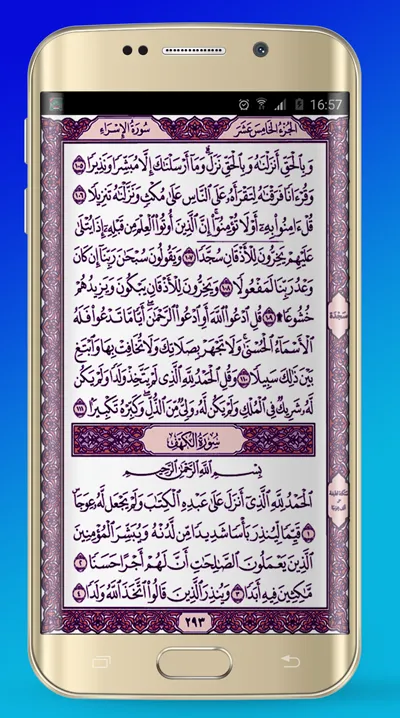 16:57
الجُزْءُ الخَامِسَ عَشَرَ سُورَةُ الإِسْرَاءِ
وَبِالْحَقِّ أَنزَلْنَٰهُ وَبِالْحَقِّ نَزَلَ ۗ وَمَآ أَرْسَلْنَٰكَ إِلَّا مُبَشِّرًا وَنَذِيرًا ١٠٥
وَقُرْءَانًا فَرَقْنَٰهُ لِتَقْرَأَهُۥ عَلَى النَّاسِ عَلَىٰ مُكْثٍ وَنَزَّلْنَٰهُ تَنزِيلًا ١٠٦
قُلْ ءَامِنُوا۟ بِهِۦٓ أَوْ لَا تُؤْمِنُوٓا۟ ۚ إِنَّ الَّذِينَ أُوتُوا۟ الْعِلْمَ مِن قَبْلِهِۦٓ إِذَا يُتْلَىٰ
عَلَيْهِمْ يَخِرُّونَ لِلْأَذْقَانِ سُجَّدًا ١٠٧ وَيَقُولُونَ سُبْحَٰنَ رَبِّنَآ إِن كَانَ
وَعْدُ رَبِّنَا لَمَفْعُولًا ١٠٨ وَيَخِرُّونَ لِلْأَذْقَانِ يَبْكُونَ وَيَزِيدُهُمْ
خُشُوعًا ۩ ١٠٩ قُلِ ادْعُوا۟ اللَّهَ أَوِ ادْعُوا۟ الرَّحْمَٰنَ ۖ أَيًّا مَّا تَدْعُوا۟ فَلَهُ
سَجْدَة
الْأَسْمَآءُ الْحُسْنَىٰ ۚ وَلَا تَجْهَرْ بِصَلَاتِكَ وَلَا تُخَافِتْ بِهَا وَابْتَغِ
بَيْنَ ذَٰلِكَ سَبِيلًا ١١٠ وَقُلِ الْحَمْدُ لِلَّهِ الَّذِى لَمْ يَتَّخِذْ وَلَدًا وَلَمْ يَكُن
لَّهُۥ شَرِيكٌ فِى الْمُلْكِ وَلَمْ يَكُن لَّهُۥ وَلِىٌّ مِّنَ الذُّلِّ ۖ وَكَبِّرْهُ تَكْبِيرًۢا ١١١
سُورَةُ الْكَهْفِ
بِسْمِ اللَّهِ الرَّحْمَٰنِ الرَّحِيمِ
الْحَمْدُ لِلَّهِ الَّذِىٓ أَنزَلَ عَلَىٰ عَبْدِهِ الْكِتَٰبَ وَلَمْ يَجْعَل لَّهُۥ عِوَجَا
١ قَيِّمًا لِّيُنذِرَ بَأْسًا شَدِيدًا مِّن لَّدُنْهُ وَيُبَشِّرَ الْمُؤْمِنِينَ
الَّذِينَ يَعْمَلُونَ الصَّٰلِحَٰتِ أَنَّ لَهُمْ أَجْرًا حَسَنًا ٢
مَّٰكِثِينَ فِيهِ أَبَدًا ٣ وَيُنذِرَ الَّذِينَ قَالُوا۟ اتَّخَذَ اللَّهُ وَلَدًا ٤
٢٩٣